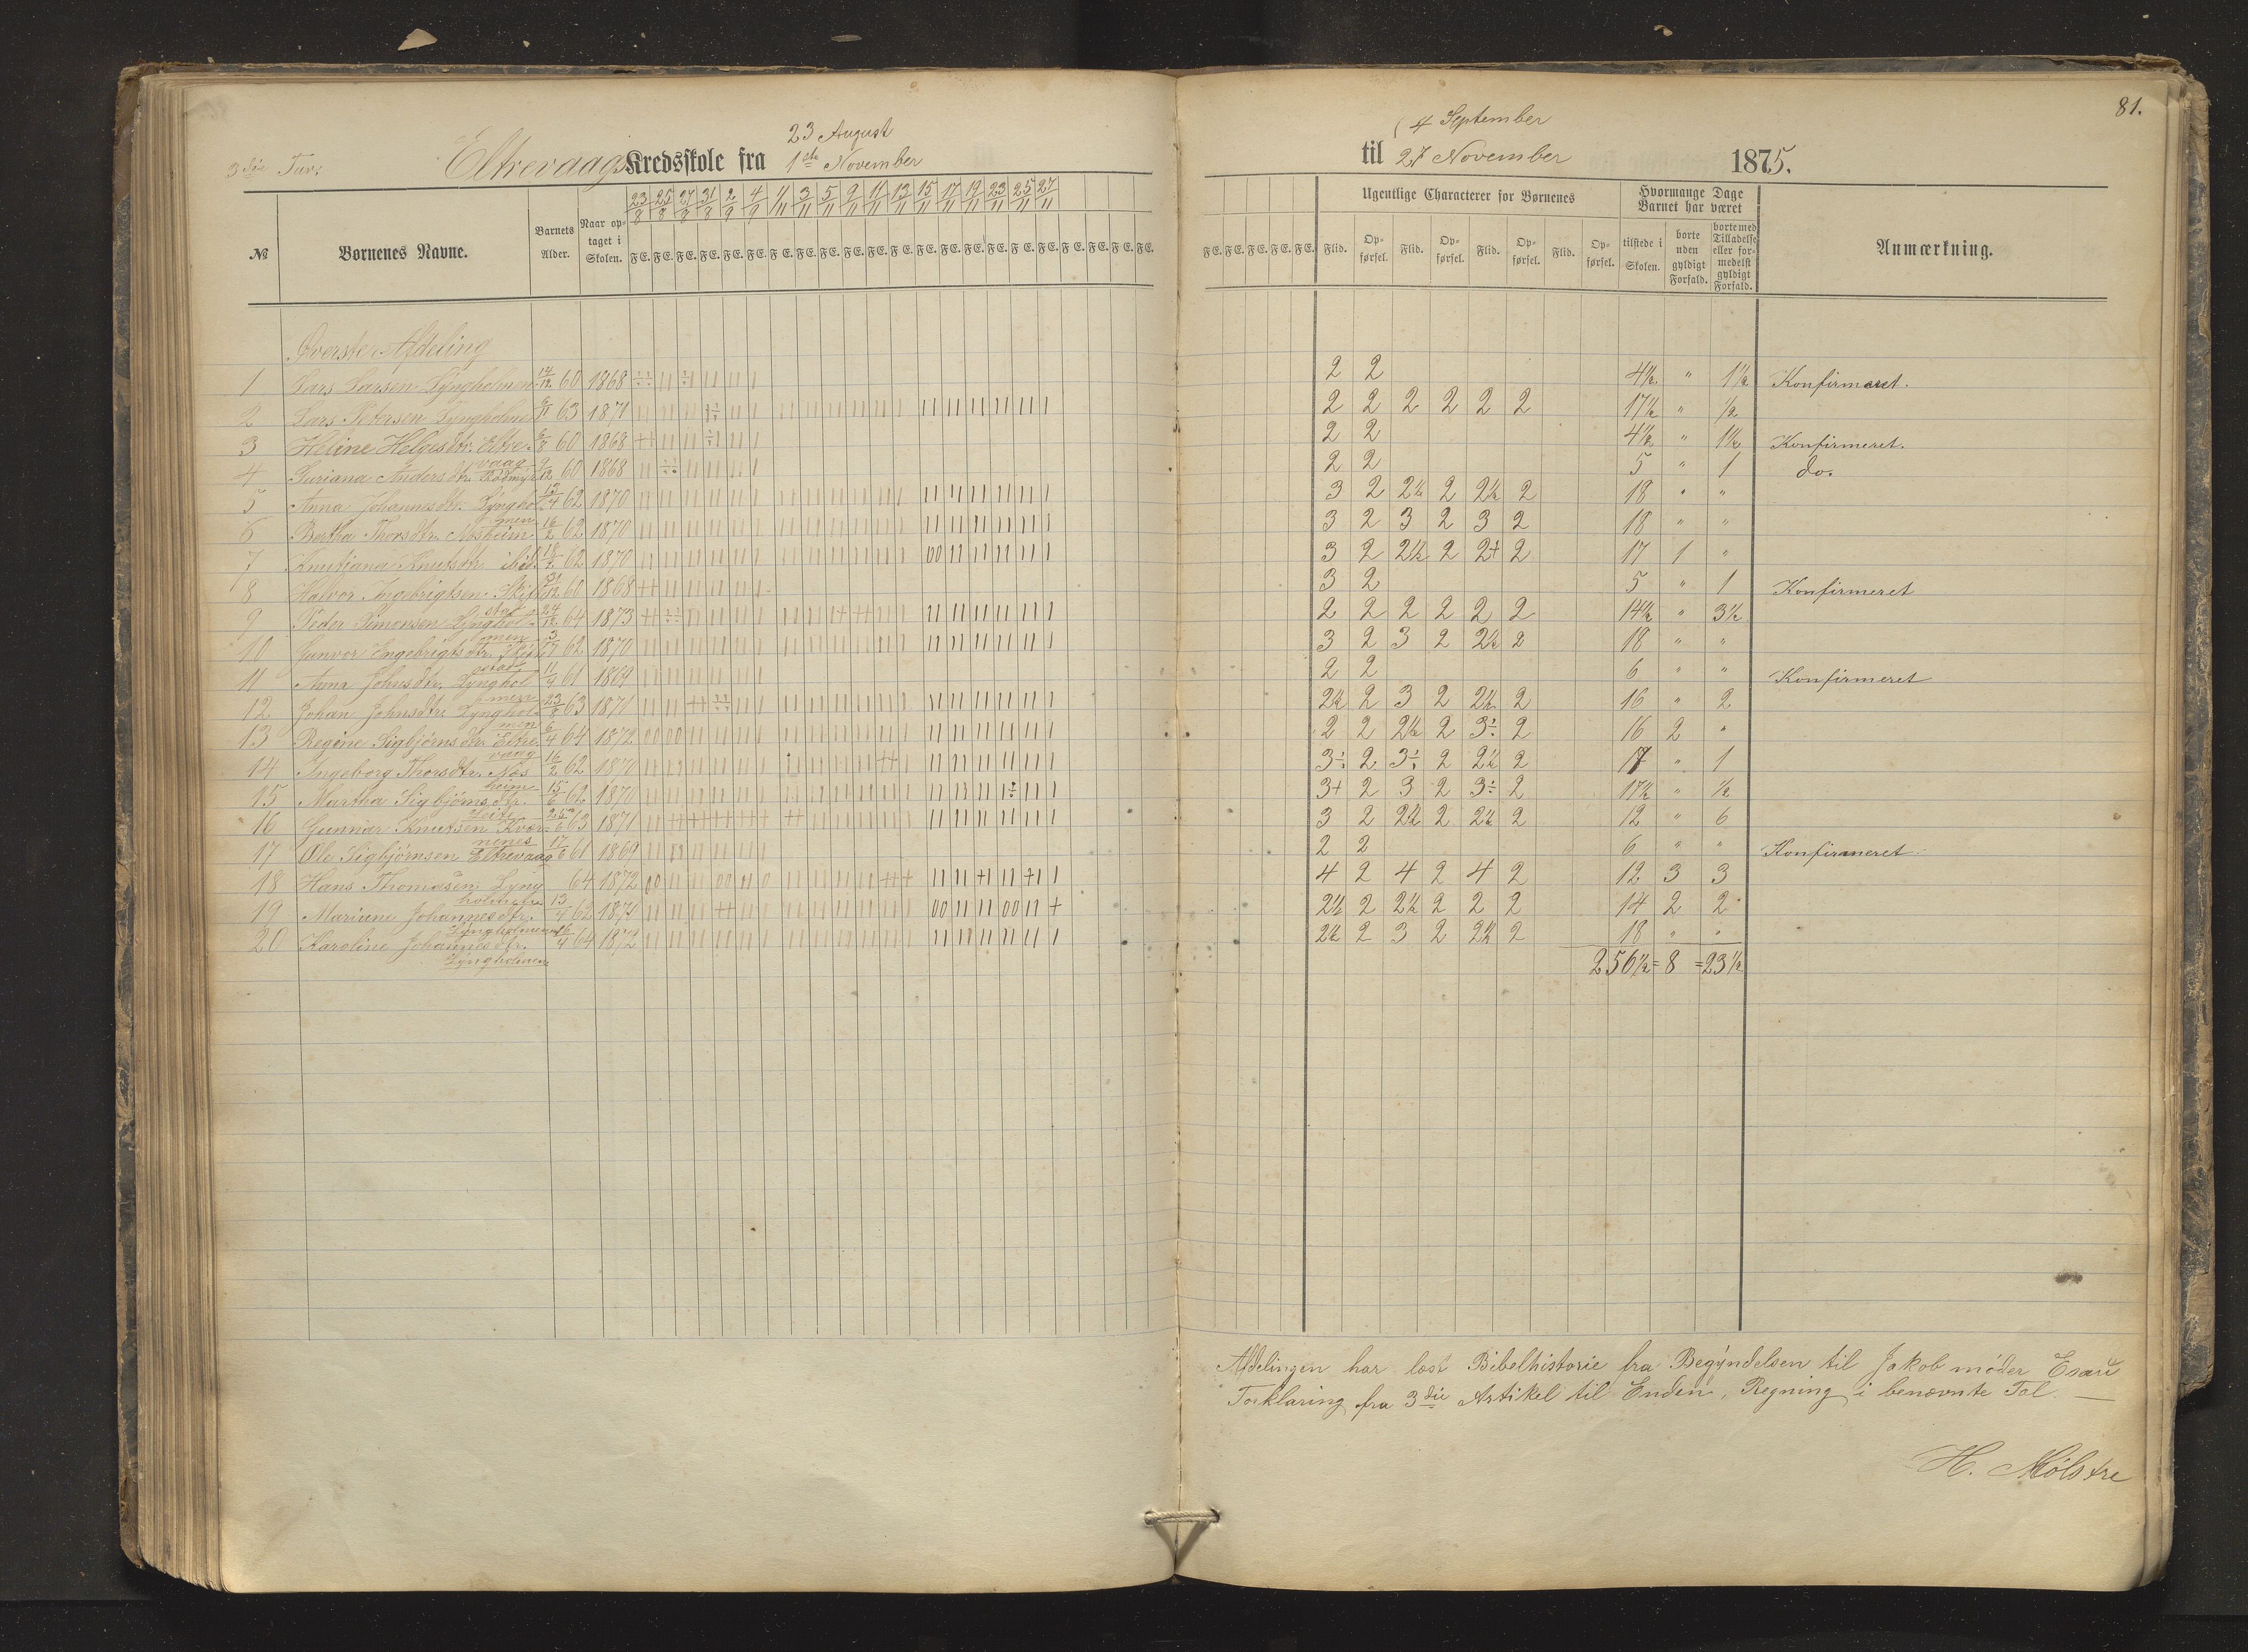 81.
3die Tur.
Eltrevaags Kredsskole fra 23 August 1ste November
til 4 September 27 November 1875.
№ Børnenes Navne. Barnets Alder. Naar optaget i Skolen. 23/8 25/8 27/8 31/8 2/9 4/9 1/11 3/11 5/11 9/11 11/11 13/11 15/11 17/11 19/11 23/11 25/11 27/11
F E. F E. F E. F E. F E. F E. F E. F E. F E. F E. F E. F E. F E. F E. F E. F E. F E. F E. F E. F E. F E. F E.
F E. F E. F E. F E. F E.
Ugentlige Characterer for Børnenes
Flid. Opførsel. Flid. Opførsel. Flid. Opførsel. Flid. Opførsel.
Hvormange Dage Barnet har været
tilstede i Skolen. borte uden gyldigt Forfald. borte med Tilladelse eller formedelst gyldigt Forfald.
Anmærkning.
Øverste Afdeling
1 Lars Larsen Lyngholmen 14/12 60 1868 2 2 4½ " 1½ Konfirmeret.
2 Lars Petersen Lyngholmen 6/11 63 1871 2 2 2 2 2 2 17½ " ½
3 Heline Helgesdtr. Eltrevaag 6/8 60 1868 2 2 4½ " 1½ Konfirmeret.
4 Guriana Andersdtr. 9/12 60 1868 2 2 5 " 1 do.
5 Anna Johannesdtr. Lyngholmen 13/4 62 1870 3 2 2½ 2 2½ 2 18 " "
6 Bertha Thorsdtr. Næsheim 16/2 62 1870 3 2 3 2 3 2 18 " "
7 Knutjana Knutsdtr. ibid. 18/2 62 1870 3 2 2½ 2 2+ 2 17 1 "
8 Halvor Ingebrigtsen Skjelstad 60 1868 3 2 5 " 1 Konfirmeret
9 Peder Simonsen Lyngholmen 24/12 64 1873 2 2 2 2 2 2 14½ " 3½
10 Gunvor Ingebrigtsdtr. 3/7 62 1870 3 2 3 2 2½ 2 18 " "
11 Anna Johnsdtr. Lyngholmen 11/4 61 1869 2 2 6 " " Konfirmeret
12 Johan Johnsdtr Lyngholmen 23/8 63 1871 2½ 2 3 2 2½ 2 16 " 2
13 Regine Sigbjørnsdtr. Eltrevaag 6/4 64 1872 2 2 2½ 2 3÷ 2 16 2 "
14 Ingeborg Thorsdtr. Næsheim 16/2 62 1870 3÷ 2 3÷ 2 2½ 2 17 " 1
15 Martha Sigbjørnsdtr. Leite 15/6 62 1870 3+ 2 3 2 3÷ 2 17½ " ½
16 Gunnar Knutsen Kvernenes 25/6 63 1871 3 2 2½ 2 2½ 2 12 " 6
17 Ole Sigbjørnsen Eltrevaag 17/6 61 1869 2 2 6 " " Konfirmeret
18 Hans Thomasen Lyngholmen 64 1872 4 2 4 2 4 2 12 3 3
19 Mariane Johannesdtr. Lyngholmen 13/4 62 1871 2½ 2 2½ 2 2 2 14 2 2
20 Karoline Johannesdtr. Lyngholmen 16/4 64 1872 2½ 2 3 2 2½ 2 18 " "
256½ = 8 = 23½
Afdelingen har læst Bibelhistorie fra Begyndelsen til Jakob møder Esau
Forklaring fra 3die Artikel til Enden, Regning i benævnte Tal. —
H. Mølstre